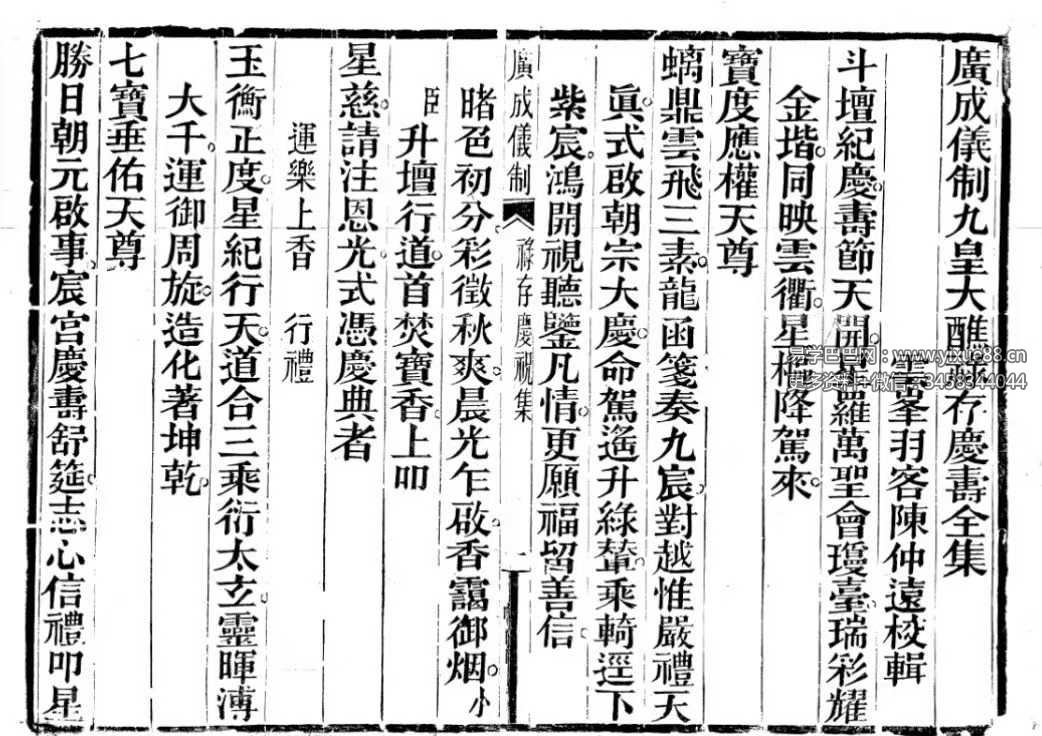 廣成儀制九皇大醮 存慶壽全集
雲峯羽客陳仲遠校輯
斗壇紀慶。壽節天開。星羅萬聖會瓊臺。瑞彩耀
金堦。同映雲衢。星 降駕來。
寶度應權天尊
螭鼎雲飛三素。龍函箋奏九宸。對越惟嚴禮天
眞。式啟朝宗大慶。命駕遙升綠輦。乘輢逕下
紫宸。鴻開視聽鑒凡情。更願福留善信。
廣成儀制 存慶祝集 一
睹色初分。彩徵秋爽。晨光乍啟。香靄御烟。小
臣升壇行道。首焚寶香。上叩
星慈。請注恩光。式憑慶典者
運樂上香 行禮
玉衡正度。星紀行天。道合三乘衍太玄。靈暉溥
大千。運御周旋。造化著坤乾。
七寶垂佑天尊
勝日朝元啟事。宸宫慶壽舒筵。志心信禮叩星
易学巴巴网：www.yixue88.cn
更多资料+微信：3458344044